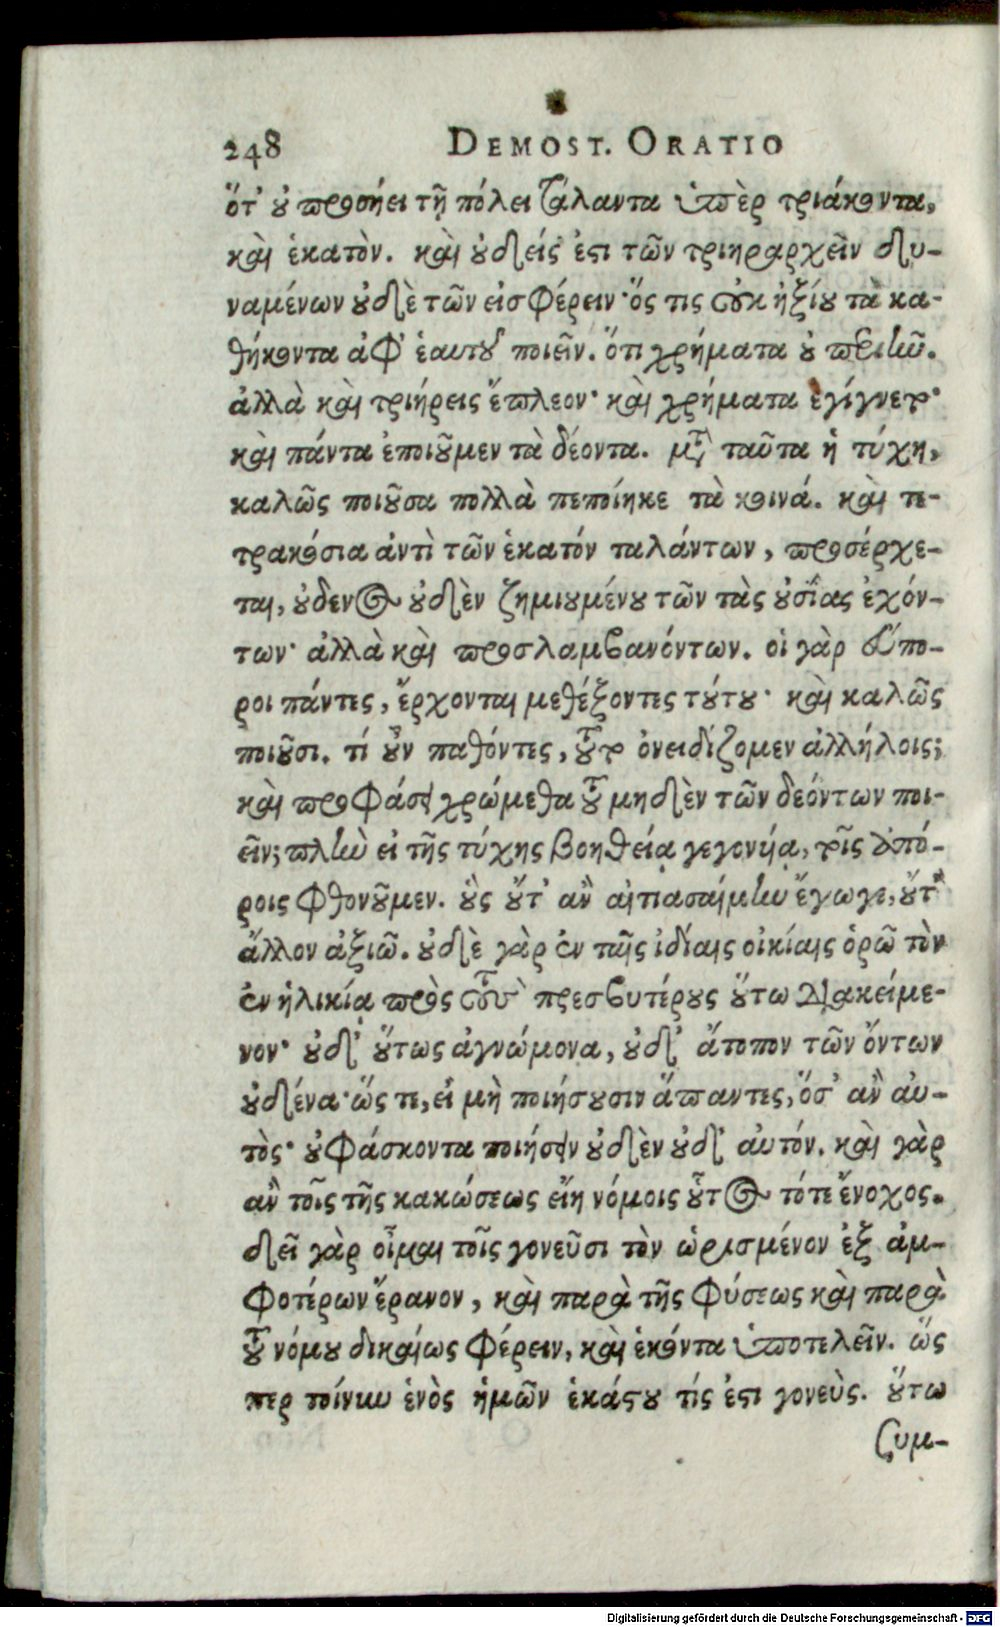 248 DEMOST. ORATIO
ὅτ' ȣ̓ προσῄει τῇ πόλει τάλαντα ὑπὲρ τριάκοντα,
καὶ ἑκατὸν. καὶ ȣ̓δείς ἐϛι τῶν τριηραρχεῖν δυ-
ναμένων ȣ̓δὲ τῶν εἰσφέρειν· ὅς τις ȣ̓κ ἠξίȣ τὰ κα-
θήκοντα ἀφ' ἑαυτȣ͂ ποιεῖν. ὅτι χρήματα ȣ̓ περιῆν.
ἀλλὰ καὶ τριήρεις ἔπλεον· καὶ χρήματα ἐγίγνετο·
καὶ πάντα ἐποιȣ͂μεν τὰ δέοντα. μετὰ ταῦτα ἡ τύχη,
καλῶς ποιȣ͂σα πολλὰ πεποίηκε τὰ κοινά. καὶ τε-
τρακόσια ἀντὶ τῶν ἑκατόν ταλάντων, προσέρχε-
ται, ȣ̓δενὸς ȣ̓δὲν ζημιȣμένȣ τῶν τὰς ȣ̓σίας ἐχόν-
των· ἀλλὰ καὶ προσλαμβανόντων. οἱ γὰρ εὔπο-
ροι πάντες, ἔρχονται μεθέξοντες τȣ́τȣ· καὶ καλῶς
ποιȣ͂σι. τί ȣ̓͂ν παθόντες, τȣ͂το ὀνειδίζομεν ἀλλήλοις;
καὶ προφάσει χρώμεθα τȣ͂ μηδὲν τῶν δεόντων ποι-
εῖν; πλὴν εἰ τῆς τύχης βοηθείᾳ γεγονυίᾳ, τοῖς ἀπό-
ροις φθονȣ͂μεν. ȣ̔̀ς ȣ̓́τ' ἂν αἰτιασαίμην ἔγωγε, ȣ̓́τ'
ἄλλον ἀξιῶ. ȣ̓δὲ γὰρ ἐν ταῖς ἰδίαις οἰκίαις ὁρῶ τὸν
ἐν ἡλικίᾳ πρὸς τοὺς πρεσβυτέρȣς ȣ̔́τω διακείμε-
νον· ȣ̓δ' ȣ̔́τως ἀγνώμονα, ȣ̓δ' ἄτοπον τῶν ὄντων
ȣ̓δένα· ὥς τε, εἰ μὴ ποιήσȣσιν ἅπαντες, ὅσ' ἂν αὐ-
τὸς· ȣ̓ φάσκοντα ποιήσειν ȣ̓δὲν ȣ̓δ' αὐτόν. καὶ γὰρ
ἂν τοῖς τῆς κακώσεως εἴη νόμοις ȣ̔͂τος τότε ἔνοχος.
δεῖ γὰρ οἶμαι τοῖς γονεῦσι τὸν ὡρισμένον ἐξ ἀμ-
φοτέρων ἔρανον, καὶ παρὰ τῆς φύσεως καὶ παρὰ
τȣ͂ νόμȣ δικαίως φέρειν, καὶ ἑκόντα ὑποτελεῖν. ὥς
περ τοίνυν ἑνὸς ἡμῶν ἑκάϛȣ τίς ἐϛι γονεὺς. ȣ̔́τω
ϛυμ-
Digitalisierung gefördert durch die Deutsche Forschungsgemeinschaft · DFG